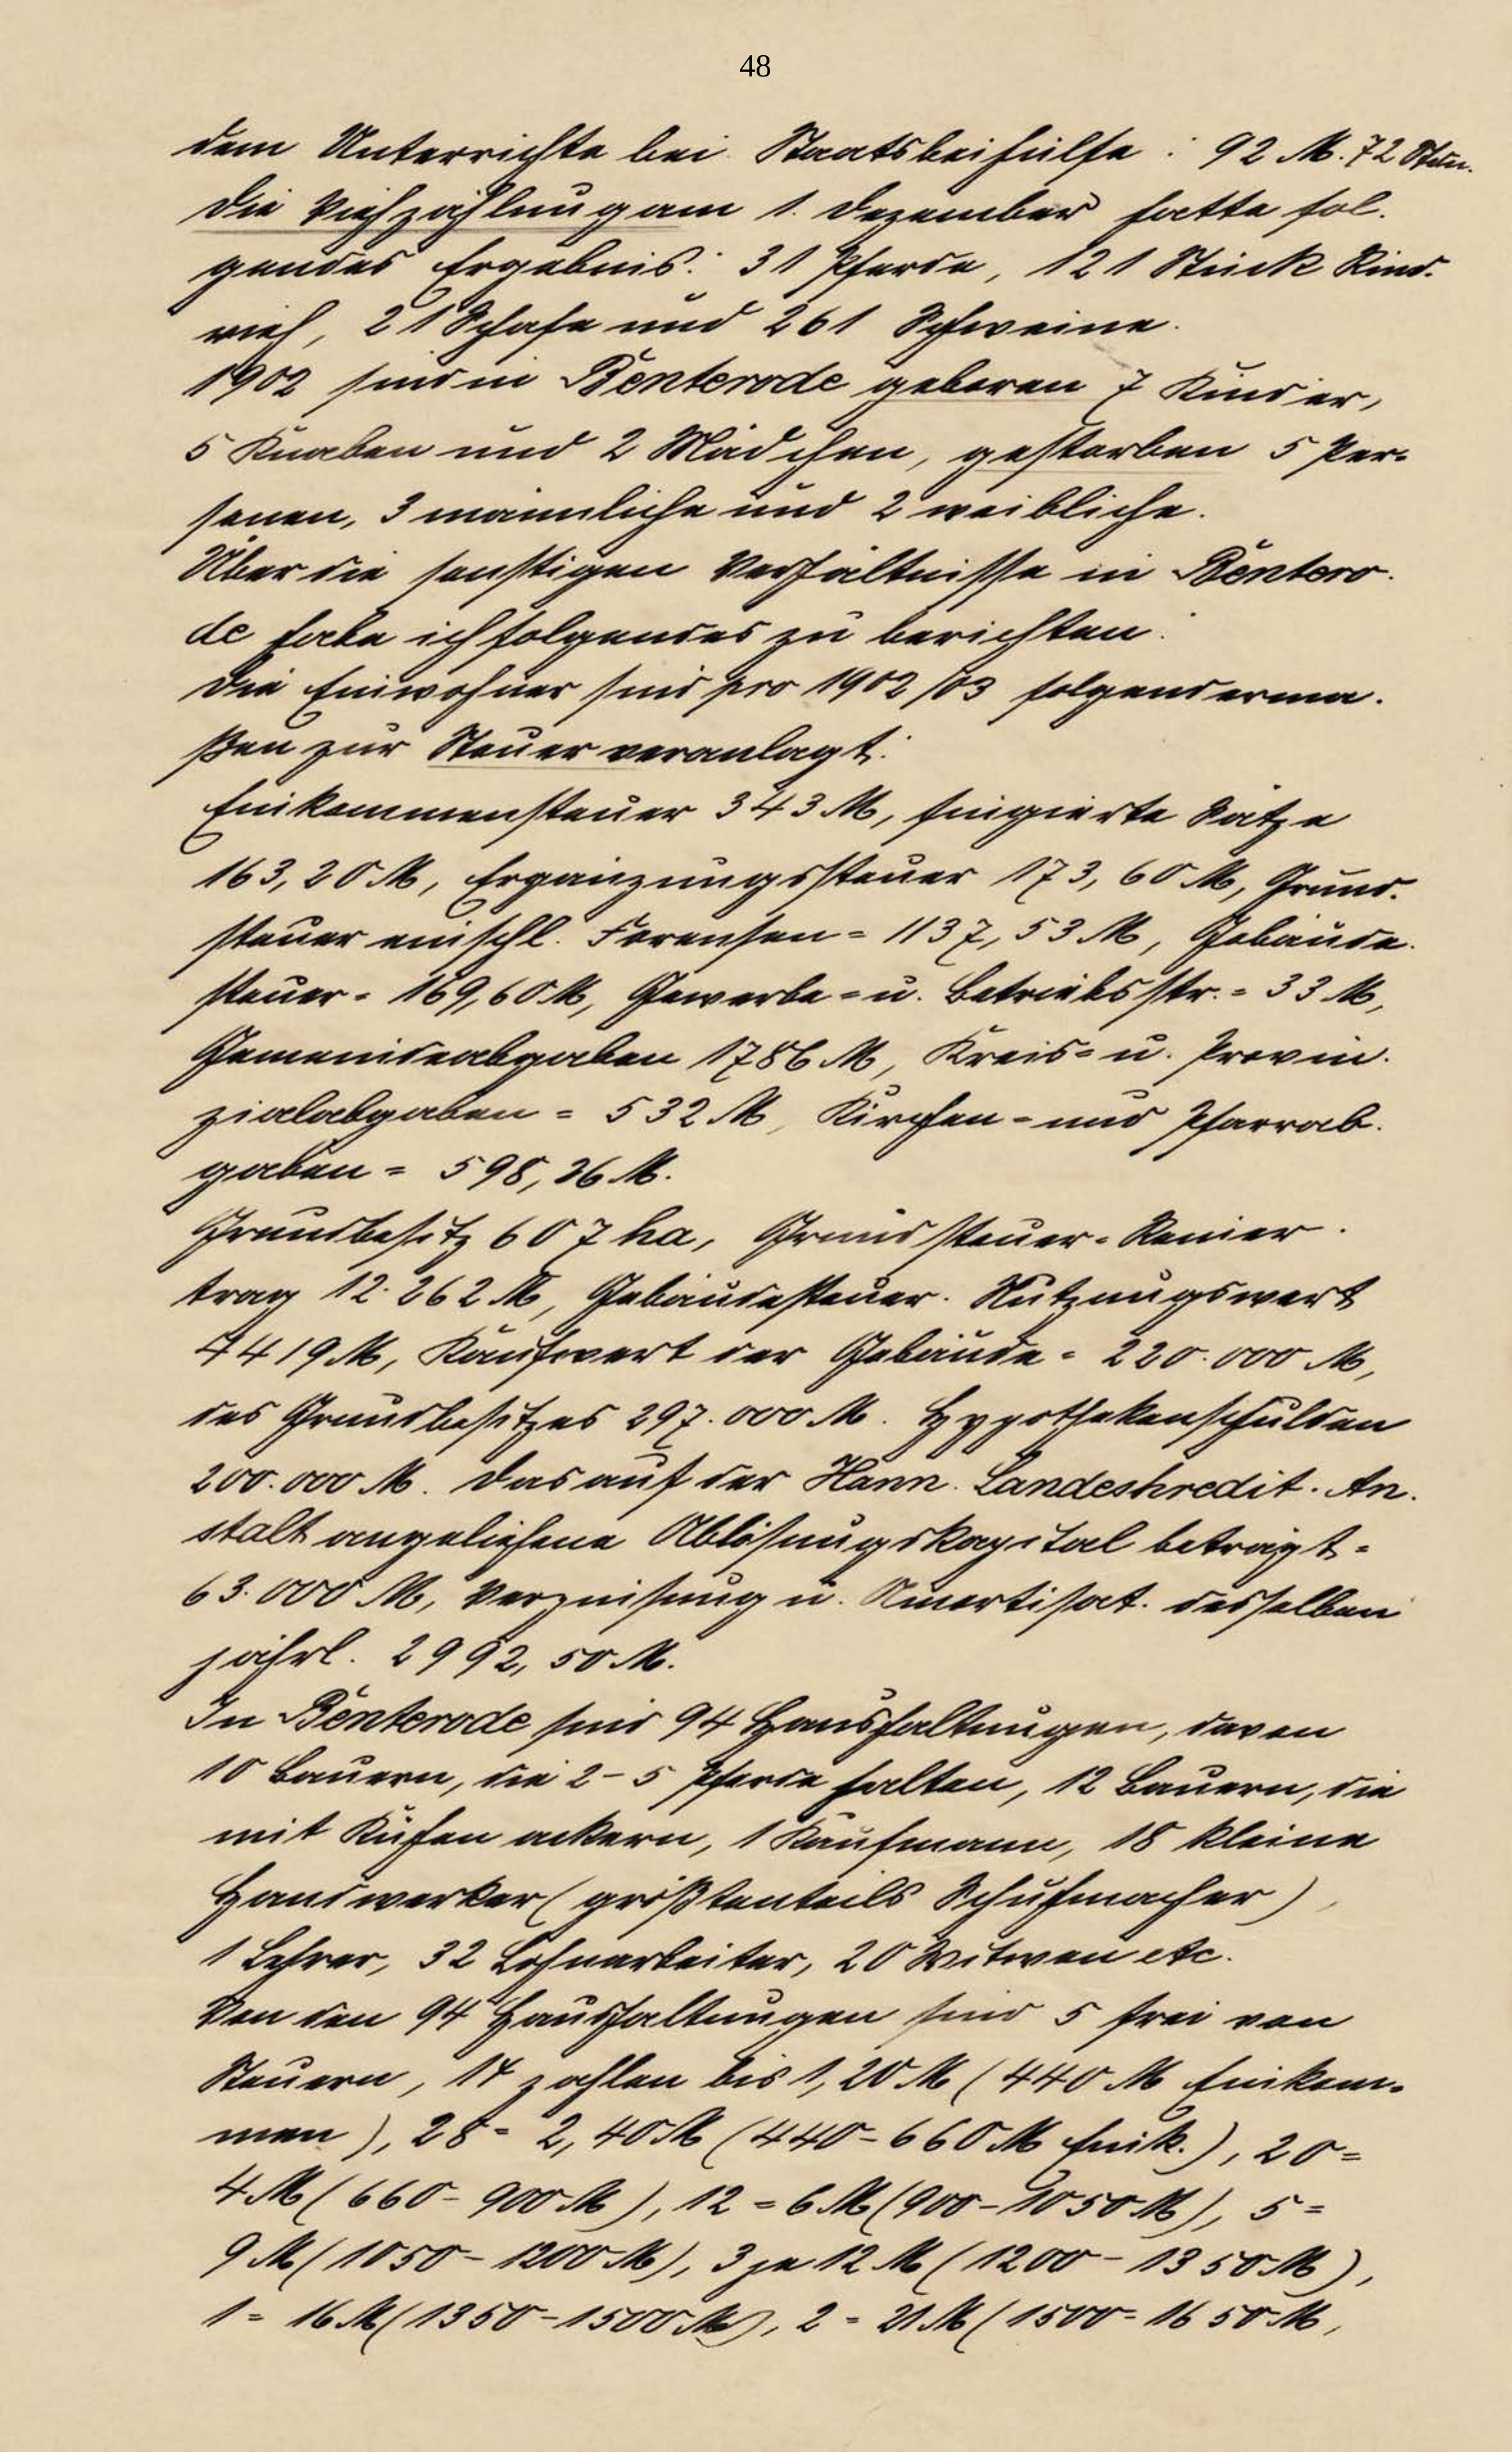 48
dem Unterrichte bei Staatsbeihülfe : 92 M. 72 Stun.
Die Viehzählung am 1. Dezember hatte fol-
gendes Ergebnis: 31 Pferde, 121 Stück Rind-
vieh, 21 Schafe und 261 Schweine.
1902 sind in Benterode geboren 7 Kinder,
5 Knaben und 2 Mädchen, gestorben 5 Per-
sonen, 3 männliche und 2 weibliche.
Über die sonstigen Verhältnisse in Bentero-
de habe ich folgendes zu berichten:
Die Einwohner sind pro 1902/03 folgenderma-
ßen zur Steuer veranlagt:
Einkommensteuer 343 M, fingierte Sätze
163,20 M, Ergänzungssteuer 173,60 M, Grund-
steuer einschl. Forensen = 1137,53 M, Gebäude-
steuer = 169,60 M, Gewerbe- u. Betriebsstr. = 33 M,
Gemeindeabgaben 1786 M, Kreis- u. Provin-
zialabgaben = 532 M, Kirchen- und Pfarrab-
gaben = 598,26 M.
Grundbesitz 607 ha, Grundsteuer-Reiner-
trag 12.262 M, Gebäudesteuer-Nutzungswert
4419 M, Kaufwert der Gebäude = 220.000 M,
des Grundbesitzes 297.000 M. Hypothekenschulden
200.000 M. Das auf der Hann. Landeskredit-An-
stalt angeliehene Ablösungskapital beträgt =
63.000 M, Verzinsung u. Amortisat. desselben
jährl. 2992,50 M.
In Benterode sind 94 Haushaltungen, davon
10 Bauern, die 2-5 Pferde halten, 12 Bauern, die
mit Kühen ackern, 1 Kaufmann, 18 kleine
Handwerker (größtenteils Schuhmacher),
1 Lehrer, 32 Lohnarbeiter, 20 Witwen etc.
Von den 94 Haushaltungen sind 5 frei von
Steuern, 14 zahlen bis 1,20 M (440 M Einkom-
men), 28 = 2,40 M (440-660 M Eink.), 20 =
4 M (660-900 M), 12 = 6 M (900-1050 M), 5 =
9 M (1050-1200 M), 3 je 12 M (1200-1350 M),
1 = 16 M (1350-1500 M), 2 = 21 M (1500-1650 M,